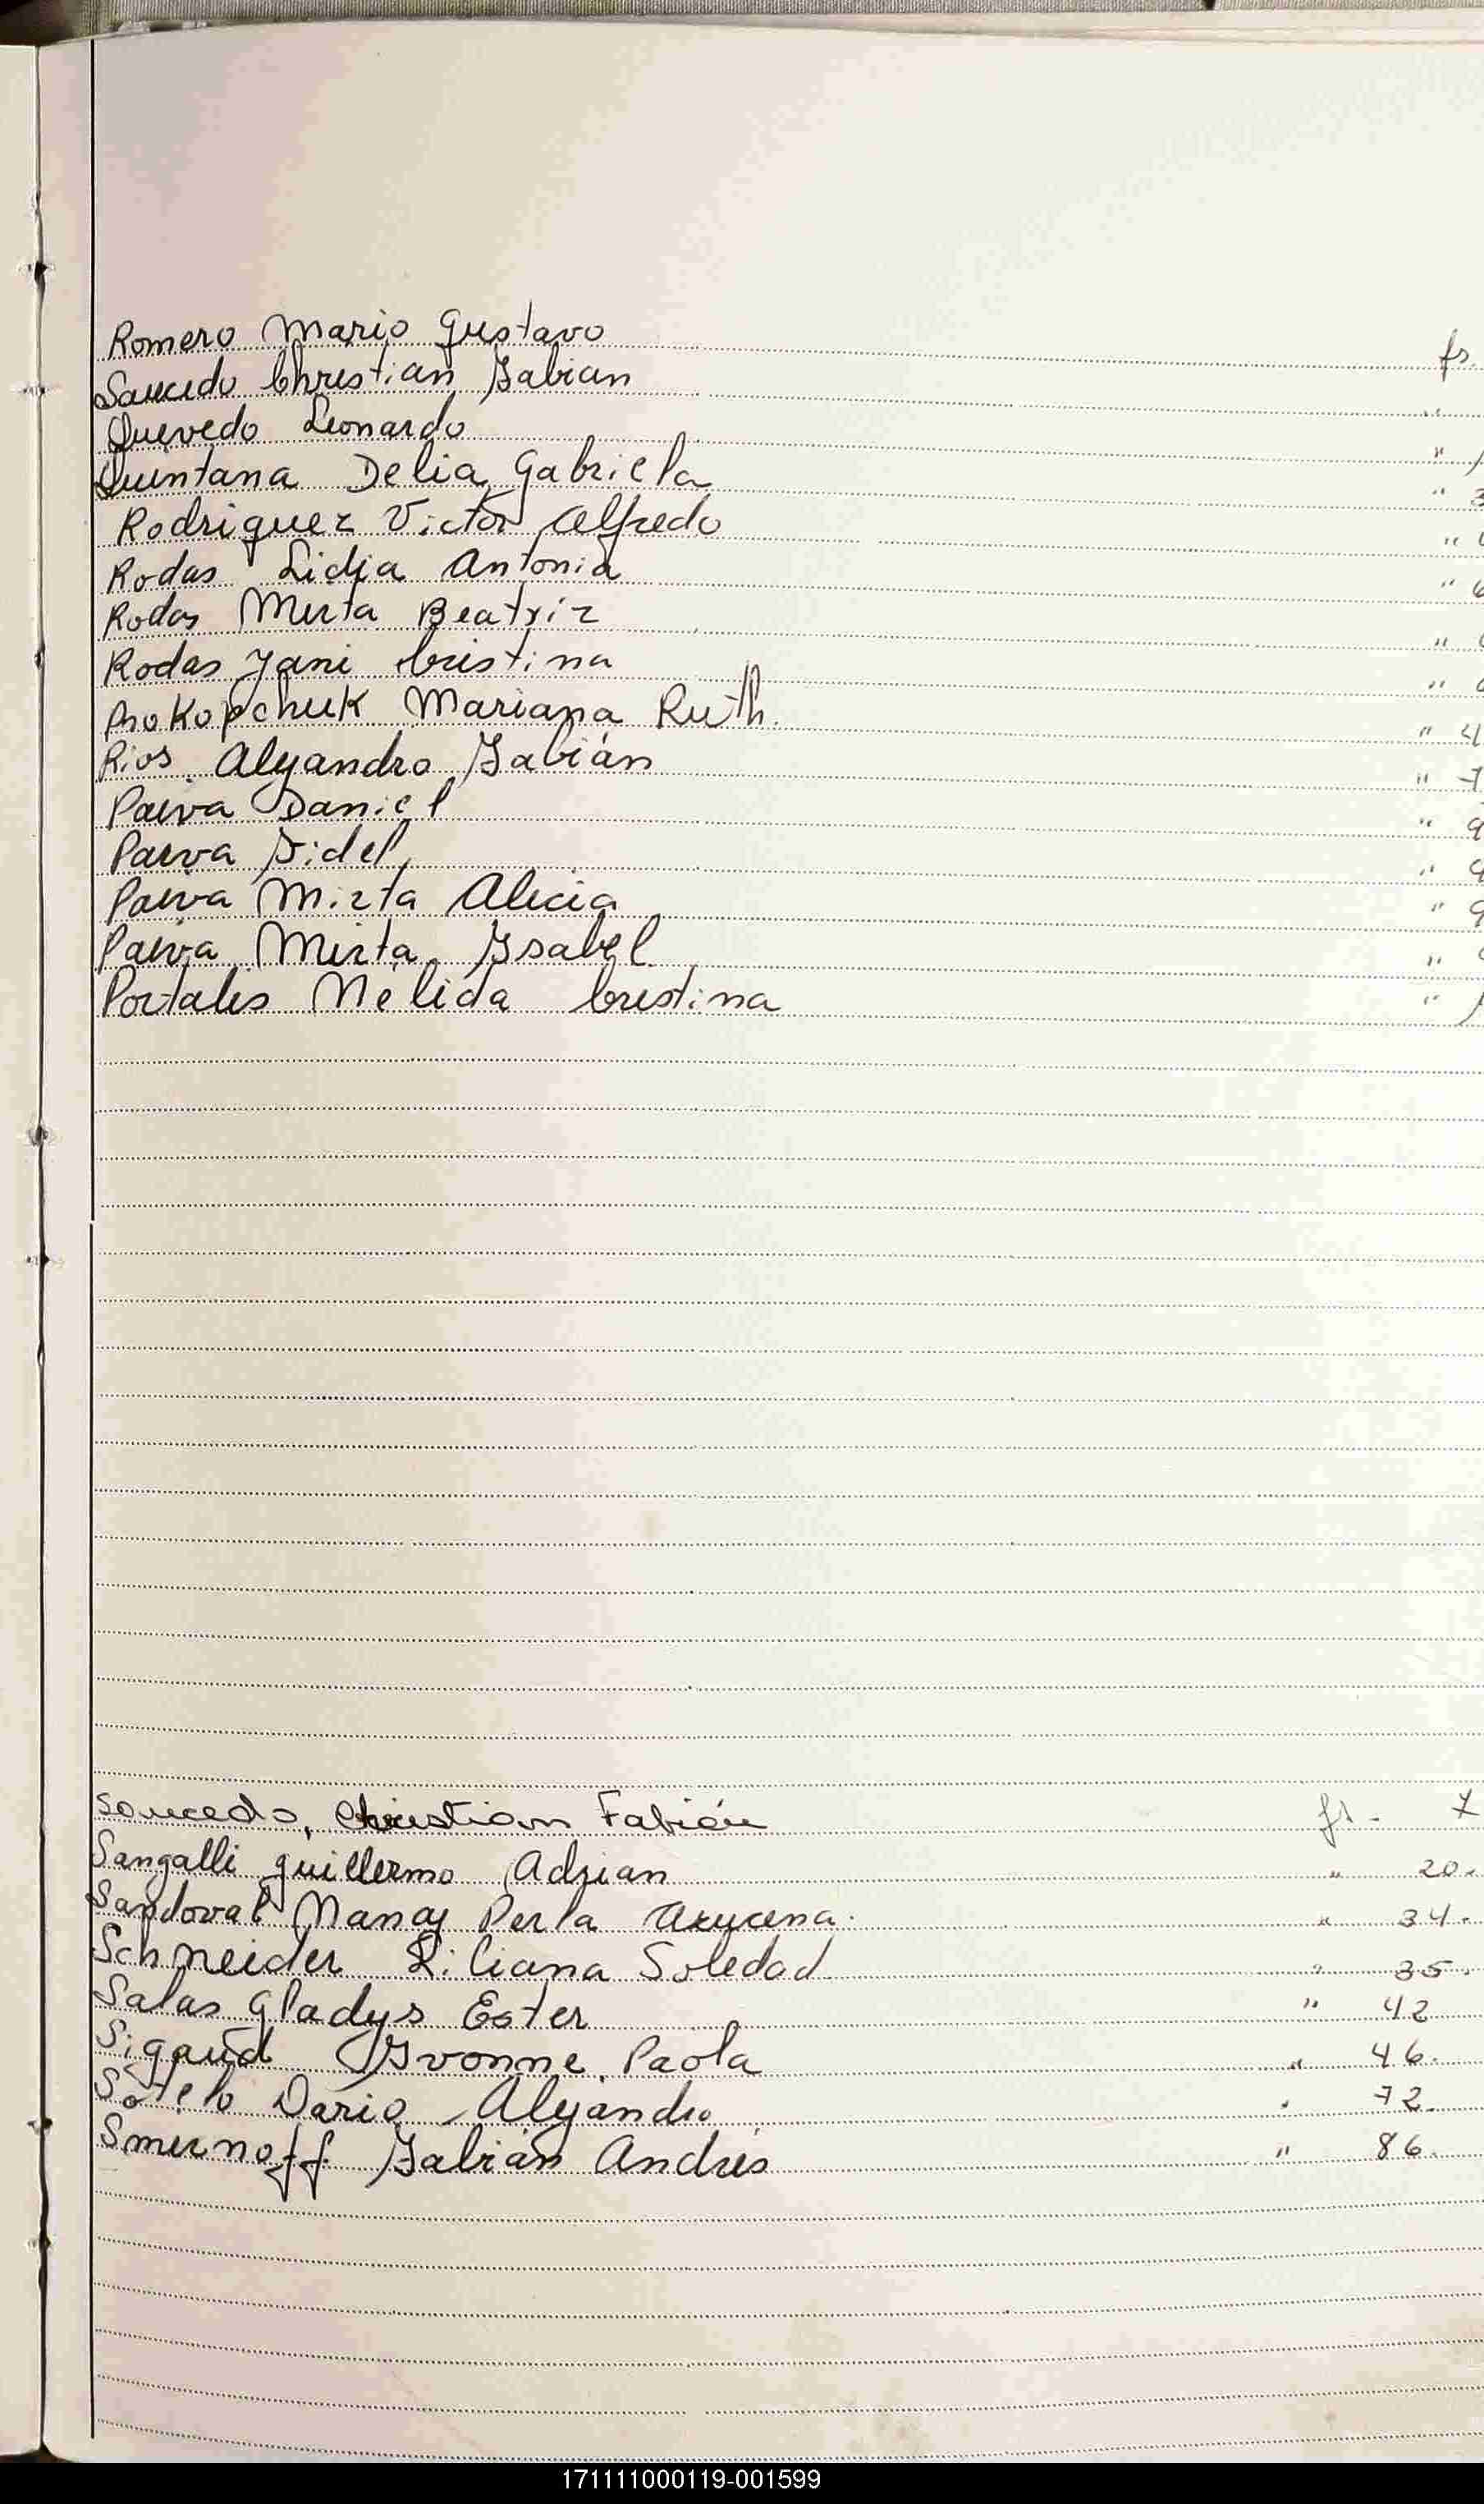 Romero Mario Gustavo fs.
Saucedo Christian Fabian "
Quevedo Leonardo "
Quintana Delia Gabriela " 3
Rodriguez Victor Alfredo "
Rodas Lidia Antonia " 6
Rodas Mirta Beatriz "
Rodas Yani Cristina "
Prokopchuk Mariana Ruth. " 4
Rios Alejandro Fabián " 7
Paiva Daniel " 9
Paiva Fidel " 9
Paiva Mirta Alicia " 9
Paiva Mirta Ysabel "
Portales Nelida Cristina "
Saucedo, Christian Fabián fs. 7
Sangalli Guillermo Adrian " 20.
Sandoval Nancy Perla Azucena. " 34.
Schneider Liliana Soledad " 35.
Salas Gladys Ester " 42
Sigaud Yvonne Paola " 46.
Sotelo Dario Alejandro " 72.
Smirnoff Fabián Andrés " 86.
171111000119-001599